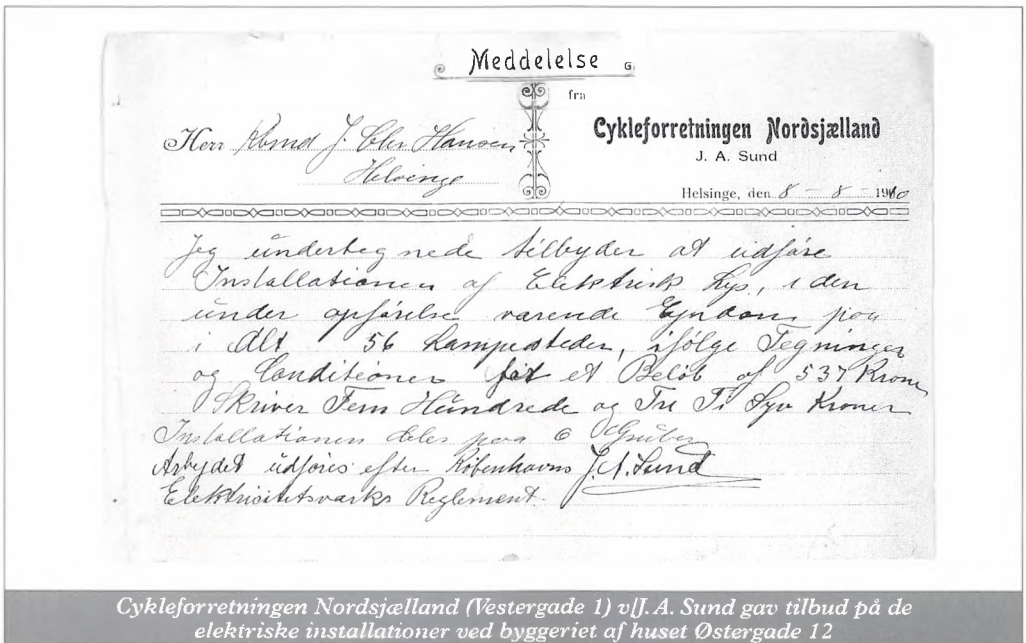 Meddelelse
fra
Cykleforretningen Nordsjælland
J. A. Sund
Herr Kbmd J. Chr Hansen
Helsinge
Helsinge, den 8 - 8 - 1910
Jeg undertegnede tilbyder at udføre
Installationen af Elektrisk Lys, i den
under opførelse værende Ejndom paa
i Alt 56 Lampesteder, ifølge Tegninger
og Conditioner for et Beløb af 537 Kroner
Skriver Fem Hundrede og Tre Ti Syv Kroner
Installationen deles paa 6 Gruber
Arbejdet udføres efter Københavns J.A. Sund
Elektricitetsværks Reglement.
Cykleforretningen Nordsjælland (Vestergade 1) v/J. A. Sund gav tilbud på de
elektriske installationer ved byggeriet af huset Østergade 12